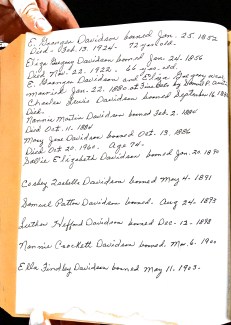 E. Granger Davidson borned Jan. 25. 1852
Died. Feb. 13. 1924. 72 yrs. old.
Eliza Gregory Davidson borned Jan. 24. 1856
Died Nov. 22. 1922. 66 yrs. old.
E. Granger Davidson and Eliza Gregory were
married Jan. 22. 1880 at Pine by
Charles Lewis Davidson borned September 16. 1880
Died.
Nannie Martin Davidson borned Feb. 2. 1884
Died Oct. 11. 1884
Mary Jane Davidson borned Oct. 13. 1886
Died Oct. 20. 1960. Age 74.
Sallie Elizabeth Davidson borned Jan. 20. 1890
Cosby Isabella Davidson borned May 4. 1891
Samuel Patton Davidson borned. Aug 24. 1893
Luther Hefford Davidson borned Dec. 12. 1898
Nannie Crockett Davidson borned. Mar. 6. 1900
Ella Findley Davidson borned May 11. 1903.